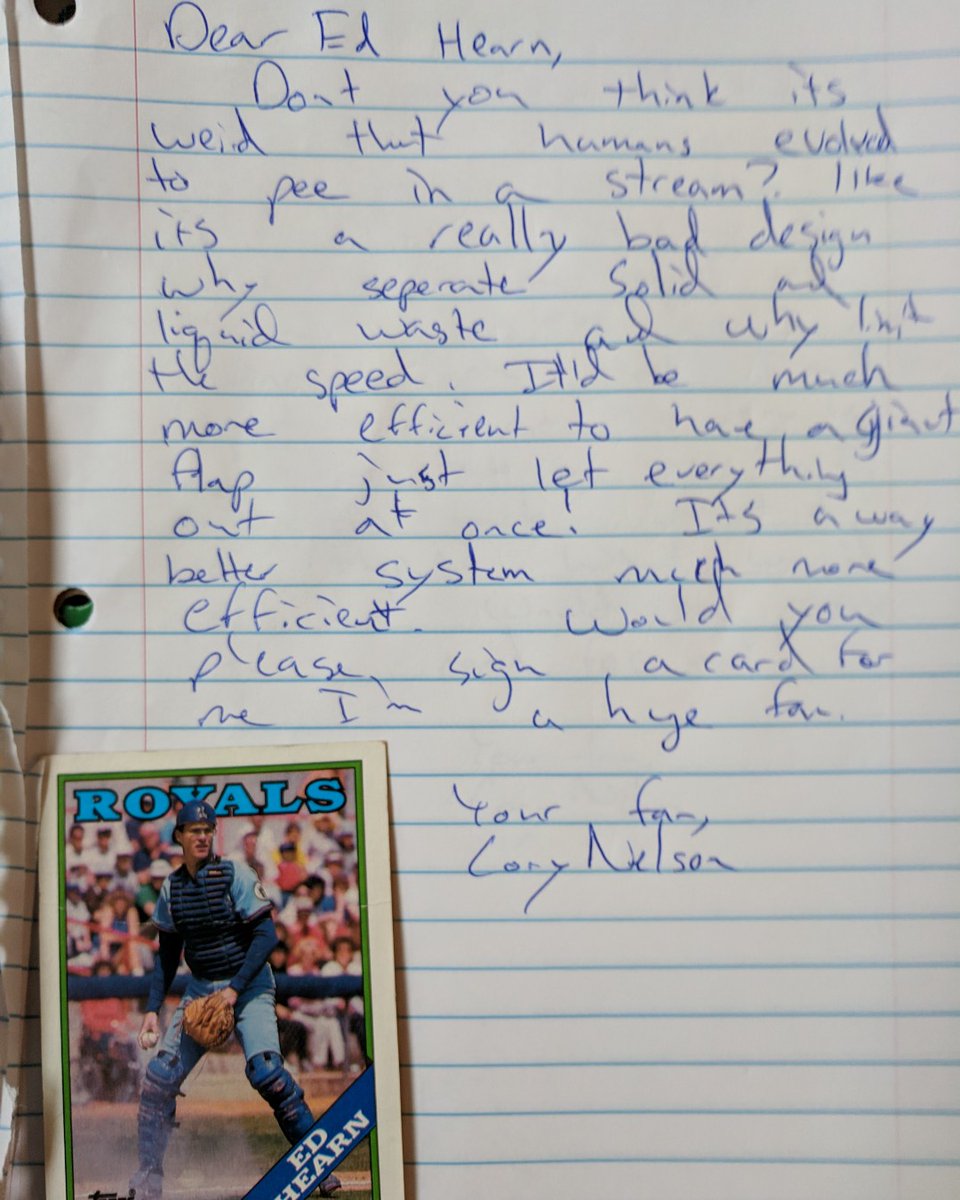 Dear Ed Hearn,
Dont you think its
weid that humans evolved
to pee in a stream? like
its a really bad design
why seperate solid and
liquid waste and why limit
the speed. It'ld be much
more efficient to have a giant
flap just let everything
out at once! Its a way
better system much more
efficient. Would you
please sign a card for
me I'm a huge fan.
Your fan,
Cory Nielson
ROYALS
ED
HEARN